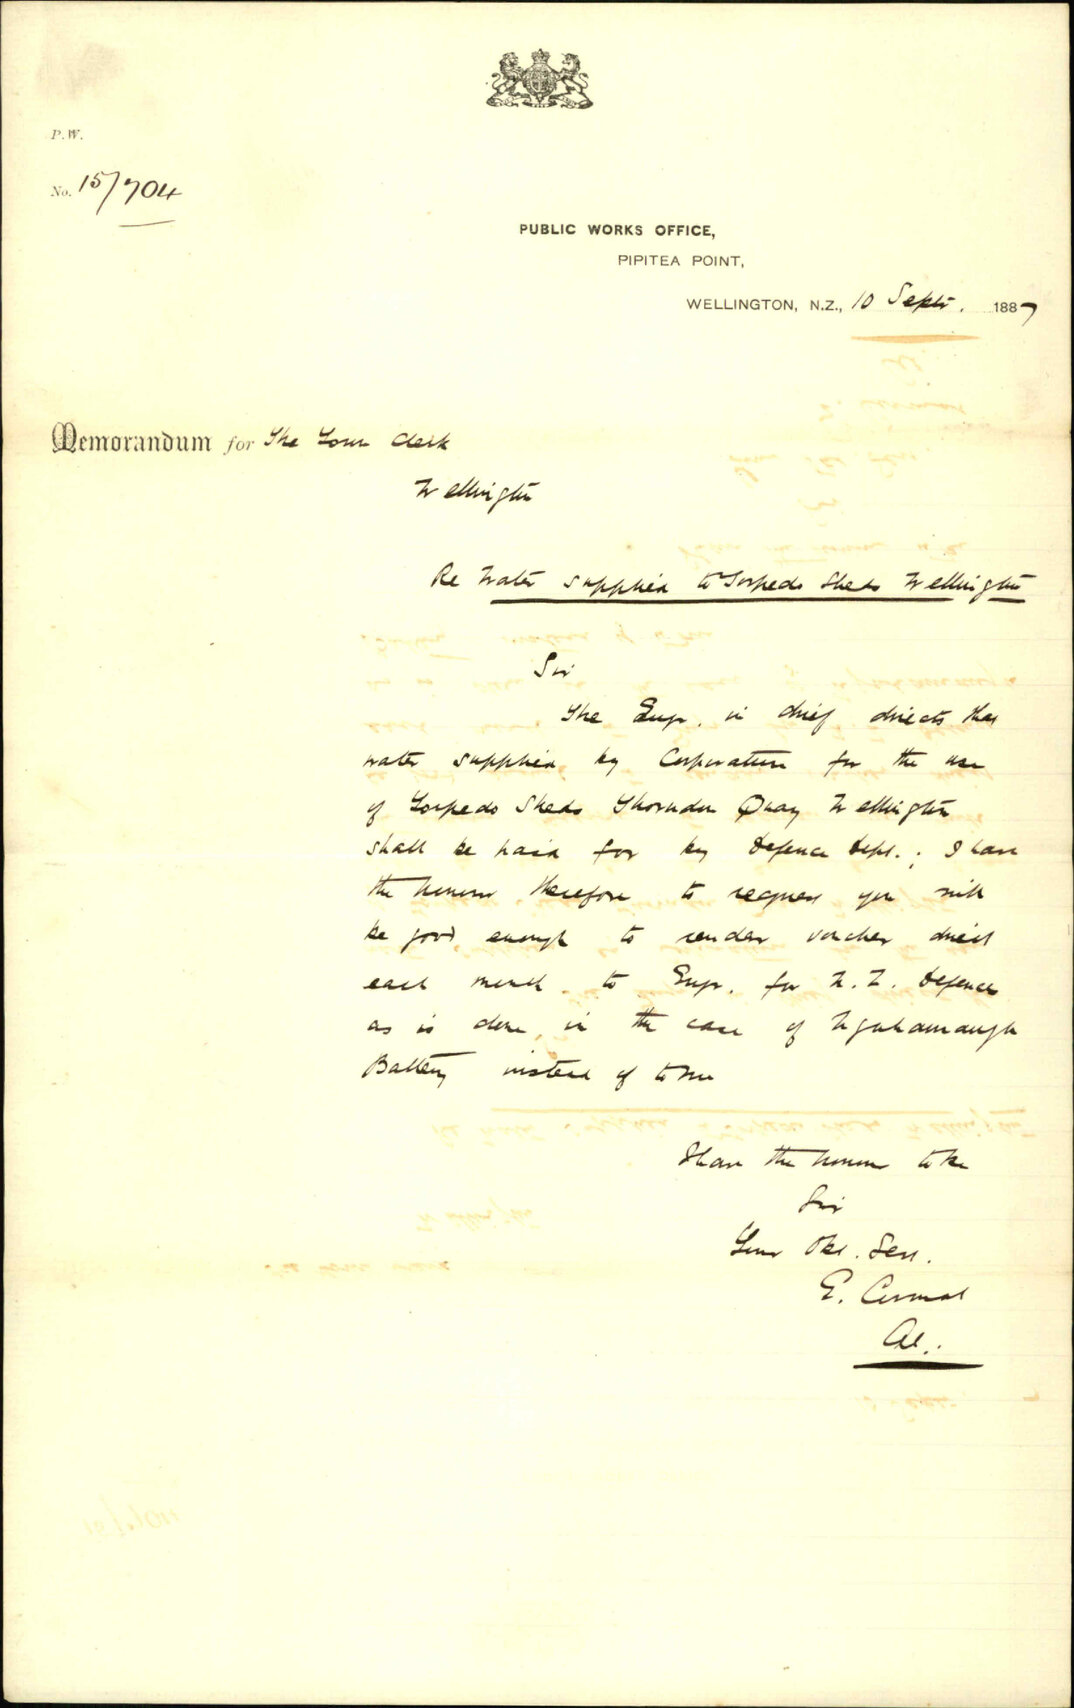 P.W.
No. 15/704
PUBLIC WORKS OFFICE,
PIPITEA POINT,
WELLINGTON, N.Z., 10 Sept. 1887
Memorandum for The Town Clerk
Wellington
Re Water supplied to Torpedo Sheds Wellington
Sir
The Engr. in chief directs that
water supplied by Corporation for the use
of Torpedo Sheds Thorndon Quay Wellington
shall be paid for by Defence Dept.; I have
the honour therefore to request you will
be good enough to render voucher direct
each month to Engr. for N.Z. Defences
as is done in the case of
Battery instead of to me
I have the honour to be
Sir
Your Obt. Serv.
E.